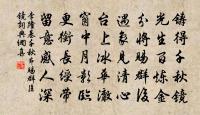 鑄得千秋鏡
光生百煉金
分將賜群後
遇象見清心
台上冰華澈
窗中月影臨
更銜長綬帶
留意感人深
李隆基千秋節賜群臣
鏡詞典網